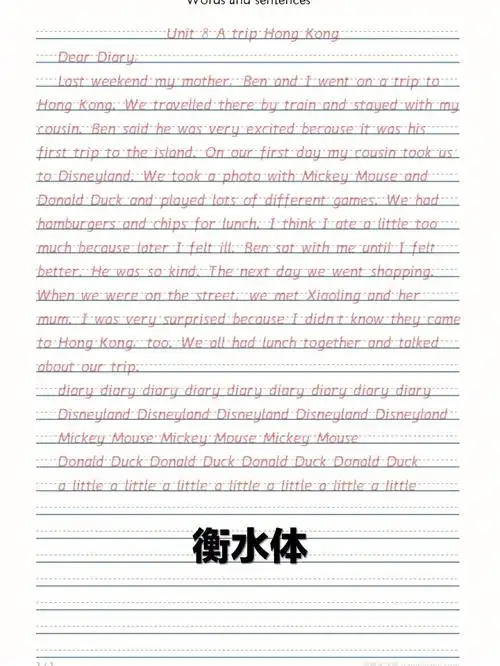 Words and sentences
Unit 8 A trip Hong Kong
Dear Diary,
Last weekend my mother, Ben and I went on a trip to
Hong Kong. We travelled there by train and stayed with my
cousin. Ben said he was very excited because it was his
first trip to the island. On our first day my cousin took us
to Disneyland. We took a photo with Mickey Mouse and
Donald Duck and played lots of different games. We had
hamburgers and chips for lunch. I think I ate a little too
much because later I felt ill. Ben sat with me until I felt
better. He was so kind. The next day we went shopping.
When we were on the street, we met Xiaoling and her
mum. I was very surprised because I didn't know they came
to Hong Kong, too. We all had lunch together and talked
about our trip.
diary diary diary diary diary diary diary diary diary
Disneyland Disneyland Disneyland Disneyland Disneyland
Mickey Mouse Mickey Mouse Mickey Mouse
Donald Duck Donald Duck Donald Duck Donald Duck
a little a little a little a little a little a little a little
衡水体
1 / 1